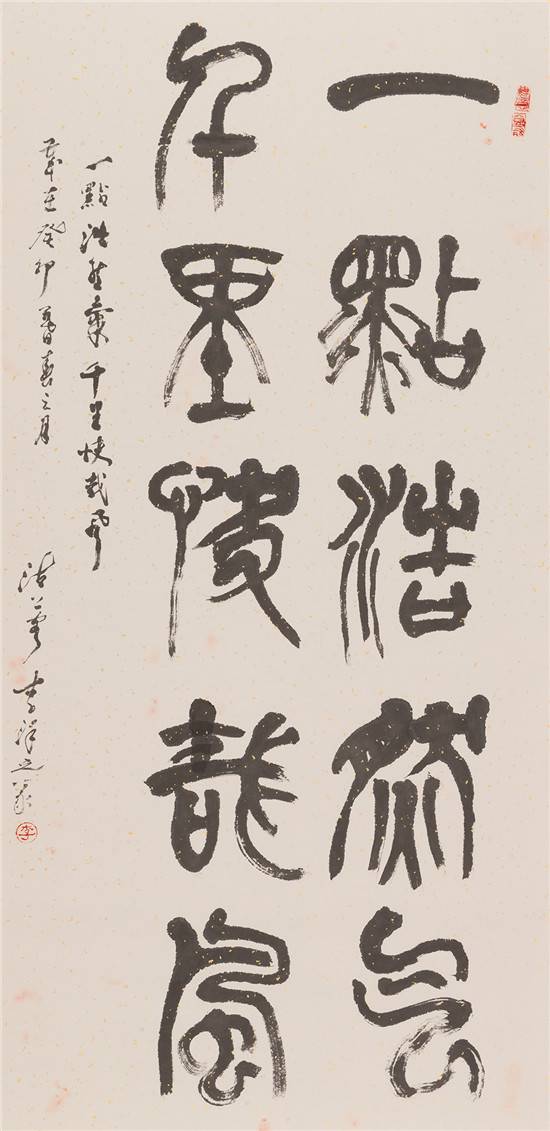 一點浩然氣
千里快哉風
一點浩然氣千里快哉風
歲在癸卯暮春之月
李之篆
李